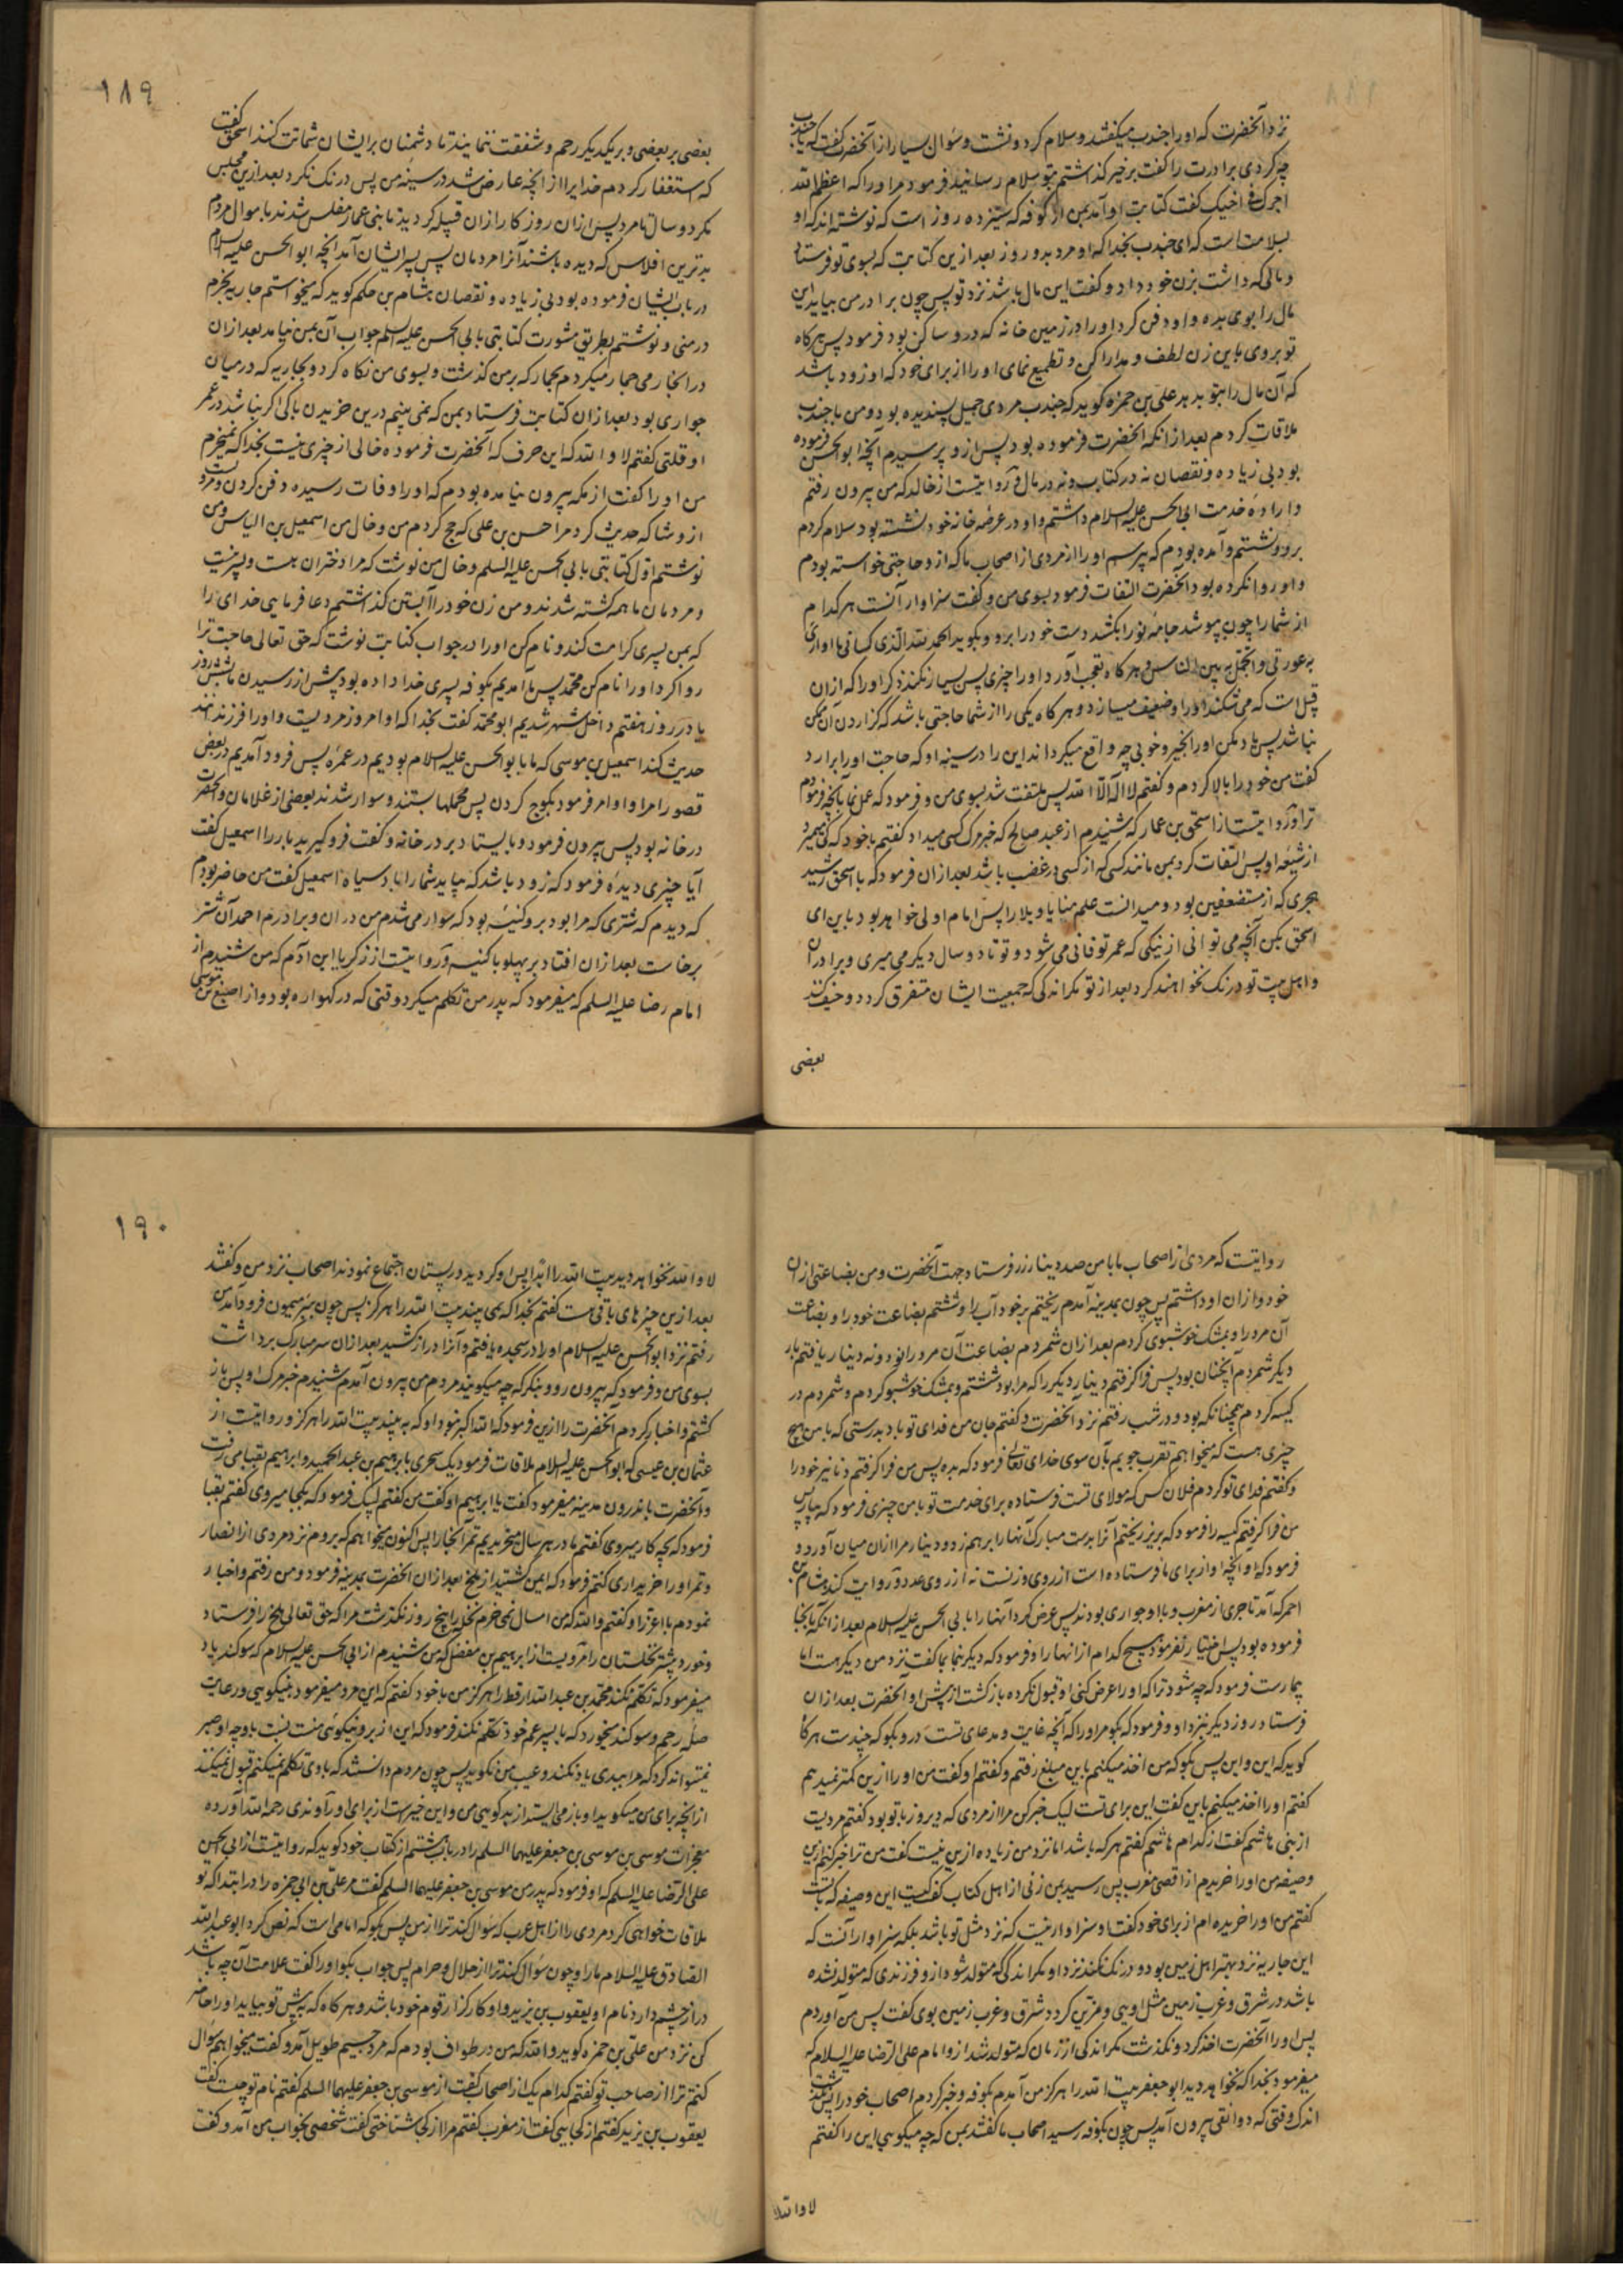 نزد آنحضرت که او را جندب میگفتند و سلام کرد و نشست و سؤال بسیار از آنحضرت گفت که یا جندب
چه کردی برادرت را گفت بر خیر گذاشتم بتو سلام رسانید فرمود مر او را که اعظم الله
اجرک فی اخیک گفت کتابت او آمد بمن از کوفه که سیزده روز است که نوشته اند که او
بسلامت است که ای جندب بخدا که او مرد بدو روز بعد از این کتابت که بسوی تو فرستاد
و مالی که داشت بزن خود داد و گفت این مال باشد نزد تو پس چون برادر من بیاید این
مال را بوی بده و او دفن کرد او را در زمین خانه که درو ساکن بود فرمود پس هرگاه
تو بروی باین زن لطف و مدارا کن و تطمیع نمای او را از برای خود که او زود باشد
که آن مال را بتو بدهد علی بن حمزه گوید که جندب مردی جمیل پسندیده بود و من با جندب
ملاقات کردم بعد از انکه آنحضرت فرموده بود پس ازو پرسیدم آنچه ابوالحسن فرموده
بود بی زیاده و نقصان نه در کتابت و نه در مال و روایتست از خالد که من بیرون رفتم
و اراده خدمت ابی الحسن علیه السلام داشتم و او در عرصه خانه خود نشسته بود سلام کردم
برو و نشستم و آمده بودم که بپرسم او را از مردی از اصحاب ما که ازو حاجتی خواسته بودم
و او روا نکرده بود آنحضرت التفات فرمود بسوی من و گفت سزاوار آنست هر کدام
از شما را چون بپوشد جامه نو را بکشد دست خود را برو و بگوید الحمد لله الذی کسانی ما اواری
به عورتی و اتجمل به بین الناس و هرگاه تعجب آورد او را چیزی پس بسیار نکند ذکر او را که ازان
قبل است که می شکند او را و ضعیف میسازد و هرگاه یکی را از شما حاجتی باشد که گزاردن آن ممکن
نباشد پس یاد مکن او را بخیر و خوبی چه واقع میگرداند این را در سینه او که حاجت او را برآرد
گفت من خود را بالا کردم و گفتم لا اله الا الله پس ملتفت شد بسوی من و فرمود که عمل نما بآنچه فرمودم
ترا و روایتست از اسحق بن عمار که شنیدم از عبد صالح که خبر مرگ کسی میداد گفتم با خود که کی میمیرد
از شیعه او پس التفات کرد بمن مانند کسی که از کسی در غضب باشد بعد ازان فرمود که یا اسحق رشید
هجری که از مستضعفین بود و میدانست علم منایا و بلایا را پس امام اولی خواهد بود باین ای
اسحق بکن آنچه می توانی از نیکی که عمر تو فانی می شود و تو تا دو سال دیگر می میری و برادران
و اهل بیت تو درنگ نخواهند کرد بعد از تو مگر اندکی که جمعیت ایشان متفرق گردد و حیف کنند
بعضی
۱۸۹
بعضی بر بعضی و بر یکدیگر رحم و شفقت ننمایند تا دشمنان بر ایشان شماتت کنند اسحق گفت
که استغفار کردم خدایرا از آنچه عارض شد در سینه من پس درنگ نکرد بعد ازین مجلس
مگر دو سال تا مرد پس ازان روزگار ازان قبیله گردید تا بنی عمار مفلس شدند باموال مردم
بدترین افلاسی که دیده باشند آنرا مردمان پس بر ایشان آمد آنچه ابوالحسن علیه السلام
در باب ایشان فرموده بود بی زیاده و نقصان هشام بن حکم گوید که میخواستم جاریه بخرم
در منی و نوشتم بطریق مشورت کتابتی بابی الحسن علیه السلم جواب آن بمن نیامد بعد ازان
در آنجا رمی جمار میکردم بجمار که بر من گذشت و بسوی من نگاه کرد و بجاریه که در میان
جواری بود بعد ازان کتابت فرستاد بمن که نمی بینم درین خریدن باکی اگر نباشد در عمر
او قلتی گفتم لا والله که این حرف که آنحضرت فرموده خالی از چیزی نیست بخدا که نمیخرم
من او را گفت از مکه بیرون نیامده بودم که او را وفات رسیده دفن کردن و مرویست
از وشا که حدیث کرد مرا حسن بن علی که حج کردم من و خال من اسمعیل بن الیاس و من
نوشتم اول کتابتی بابی الحسن علیه السلم و خال من نوشت که مرا دختران هست و پسر نیست
و مردمان ما همه کشته شدند و من زن خود را آبستن گذاشتم دعا فرمایی خدای را
که بمن پسری کرامت کند و نام کن او را در جواب کتابت نوشت که حق تعالی حاجت ترا
روا کرد او را نام کن محمد پس ما آمدیم بکوفه پسری خدا داده بود پیش از رسیدن ما بشش روز
یا در روز هفتم داخل شهر شدیم ابو محمد گفت بخدا که او امروز مردیست و او را فرزندانند
حدیث کند اسمعیل بن موسی که ما با ابوالحسن علیه السلام بودیم در عمره پس فرود آمدیم در بعض
قصور امرا و او امر فرمود بکوچ کردن پس محملها بستند و سوار شدند بعضی از غلامان و آنحضرت
در خانه بود پس بیرون فرمود و بایستاد بر در خانه و گفت فرو گیرید بار را اسمعیل گفت
آیا چیزی دیده فرمود که زود باشد که بیاید شما را باد سیاه اسمعیل گفت من حاضر بودم
که دیدم که شتری که مرا بود برو کنیسه بود که سوار می شدم من دران و برادرم احمد آن شتر
برخاست بعد ازان افتاد بر پهلو با کنیسه و روایتست از زکریا ابن آدم که من شنیدم از
امام رضا علیه السلم که میفرمود که پدر من تکلم میکرد وقتی که در گهواره بود و از اصبغ بن موسی
روایتست که مردی از اصحاب ما با من صد دینار زر فرستاد جهت آنحضرت و من بضاعتی ازان
خود و ازان او داشتم پس چون بمدینه آمدم ریختم بر خود آب را و شستم بضاعت خود را و بضاعت
آن مرد را و بمشک خوشبوی کردم بعد ازان شمردم بضاعت آن مرد را نود و نه دینار یافتم بار
دیگر شمردم آنچنان بود پس فرا گرفتم دینار دیگر را که مرا بود شستم و بمشک خوشبو کردم و شمردم در
کیسه کردم همچنانکه بود و در شب رفتم نزد آنحضرت و گفتم جان من فدای تو باد بدرستی که با من هیچ
چیزی هست که میخواهم تقرب جویم بآن سوی خدای تعالی فرمود که بده پس من فرا گرفتم دنانیر خود را
و گفتم فدای تو گردم فلان کس که مولای تست فرستاده برای خدمت تو با من چیزی فرمود که بیار پس
من فرا گرفتم کیسه را فرمود که بریز ریختم آنرا بدست مبارک آنها را بر هم زد و دینار مرا ازان میان آورد و
فرمود که او آنچه او از برای ما فرستاده است از روی وزنست نه از روی عدد و روایت کند هشام بن
احمر که آمد تاجری از مغرب و با او جواری بودند پس عرض کرد آنها را بابی الحسن علیه السلام بعد از انکه بآنجا
فرموده بود پس اختیار نفرمود هیچ کدام از انها را و فرمود که دیگر بنما بما گفت نزد من دیگر هست اما
بیمارست فرمود که چه شود ترا که او را عرض کنی او قبول نکرده بازگشت از پیش او آنحضرت بعد ازان
فرستاد روز دیگر بنزد او و فرمود که بگو مر او را که آنچه غایت و مدعای تست درو بگو که چندست هرگاه
گوید که این و این پس بگو که من اخذ میکنم باین مبلغ رفتم و گفتم او گفت من او را ازین کمتر نمیدهم
گفتم او را اخذ میکنم باین گفت این برای تست لیک خبر کن مرا از مردی که دیروز با تو بود گفتم مردیست
از بنی هاشم گفت از کدام هاشم گفتم هر که باشد اما نزد من زیاده ازین نیست گفت من ترا خبر کنم ازین
وصیفه من او را خریدم از اقصی مغرب پس رسید بمن زنی از اهل کتاب گفت کیست این وصیفه که با تست
گفتم من او را خریده ام از برای خود گفت او سزاوار نیست که نزد مثل تو باشد بلکه سزاوار آنست که
این جاریه نزد بهتر اهل زمین بود و درنگ نکند نزد او مگر اندکی که متولد شود ازو فرزندی که متولد نشده
باشد در شرق و غرب زمین مثل اویی و مزین گردد شرق و غرب زمین بوی گفت پس من آوردم
پس او را آنحضرت اخذ کرد و نگذشت مگر اندکی از زمان که متولد شد ازو امام علی الرضا علیه السلام که
میفرمود بخدا که نخواهد دید ابو جعفر بیت الله را هرگز من آمدم بکوفه و خبر کردم اصحاب خود را پس نگذشت
اندک وقتی که دوانقی بیرون آمد پس چون بکوفه رسید اصحاب ما گفتند بمن که چه میگویی این را گفتم
لا والله
۱۹۰
لا والله نخواهد دید بیت الله را ابدا پس او گردید در بستان اجتماع نمودند اصحاب نزد من و گفتند
بعد ازین چیزهای باقی هست گفتم بخدا که نمی بیند بیت الله را هرگز پس چون ببئر میمون فرود آمد من
رفتم نزد ابوالحسن علیه السلام او را در سجده یافتم و آنرا دراز کشید بعد ازان سر مبارک برداشت
بسوی من و فرمود که بیرون رو و بنگر که چه میگویند مردم من بیرون آمدم شنیدم خبر مرگ او پس باز
گشتم و اخبار کردم آنحضرت را ازین فرمود که الله اکبر نبود او که به بیند بیت الله را هرگز و روایتست از
عثمان بن عیسی که ابوالحسن علیه السلام ملاقات فرمود یک سحری بابرهیم بن عبد الحمید و ابرهیم بقبا می رفت
و آنحضرت باندرون مدینه میفرمود گفت یا ابرهیم او گفت من گفتم لبیک فرمود که بکجا میروی گفتم بقبا
فرمود که بچه کار میروی گفتم ما در هر سال میخریدیم تمر آنجا را پس اکنون میخواهم که بروم نزد مردی از انصار
و تمر او را خریداری کنم فرمود که ایمن گشتید از ملخ بعد ازان آنحضرت بمدینه فرمود و من رفتم و اخبار
نمودم با اعزا و گفتم والله که من امسال نمی خرم نخل را پنج روز نگذشت مرا که حق تعالی ملخ را فرستاد
و خورد بیشتر نخلستان را مرویست از ابرهیم بن مفضل که من شنیدم از ابی الحسن علیه السلام که سوگند یاد
میفرمود که تکلم نکند محمد بن عبد الله ارقط را هرگز من با خود گفتم که این مرد میفرمود بنیکویی و رعایت
صله رحم و سوگند میخورد که با پسر عم خود تکلم نکند فرمود که این از بر و نیکوئی منست نسبت باو چه او صبر
نمیتواند کرد که مرا ببدی یاد نکند و عیب من نگوید پس چون مردم دانستند که با وی تکلم نمیکنم قبول نمیکنند
از آنچه برای من میگوید او باز می ایستد از بدگویی من و این خیرست از برای او راوندی رحمه الله آورده
معجزات موسی بن موسی بن جعفر علیهما السلم را در باب هشتم از کتاب خود گوید که روایتست از ابی الحسن
علی الرضا علیه السلم که او فرمود که پدر من موسی بن جعفر علیهما السلم گفت مر علی بن ابی حمزه را در ابتدا که تو
ملاقات خواهی کرد مردی را از اهل عرب که سؤال کند ترا از من پس بگو که امامی است که نص کرد ابو عبدالله
الصادق علیه السلام ما را و چون سؤال کند ترا از حلال و حرام پس جواب بگو او را گفت علامت آن چه باشد
دراز چشم دارد نام او یعقوب بن یزید و او کارگزار قوم خود باشد و هرگاه که به پیش تو بیاید او را حاضر
کن نزد من علی بن حمزه گوید والله که من در طواف بودم که مرد جسیم طویل آمد و گفت میخواهم سؤال
کنم ترا از صاحب تو گفتم کدام یک از اصحاب گفت از موسی بن جعفر علیهما السلم گفتم نام تو چیست گفت
یعقوب بن یزید گفتم از کجایی گفت از مغرب گفتم مرا از کی شناختی گفت شخصی بخواب من آمد و گفت